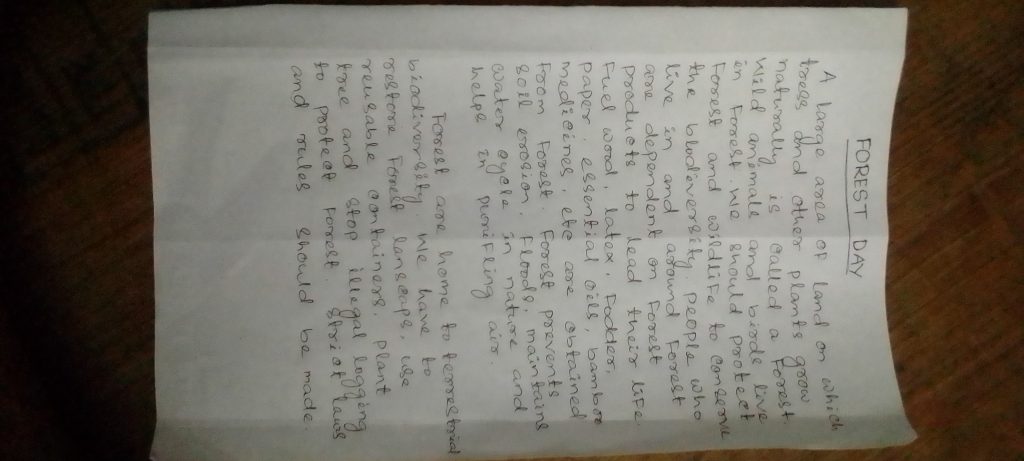 FOREST DAY
A large area of land on which
trees and other plants grow
naturally is called a Forest.
Wild animals and birds live
in Forest. We should protect
Forest and wildlife to conserve
the biodiversity. People who
live in and around Forest
are dependent on Forest
products to lead their life
Fuel wood, latex, Fodder,
paper, essential oils, bamboo
medicines, etc are obtained
From Forest. Forest prevents
soil erosion, Floods, maintains
water cycle in nature and
helps in purifiing air.
Forest are home to terrestrial
biodiversity. We have to
restore Forest lanscaps, use
reusable containers, plant
tree and stop illegal logging
to protect Forest. Strict laws
and rules should be made.